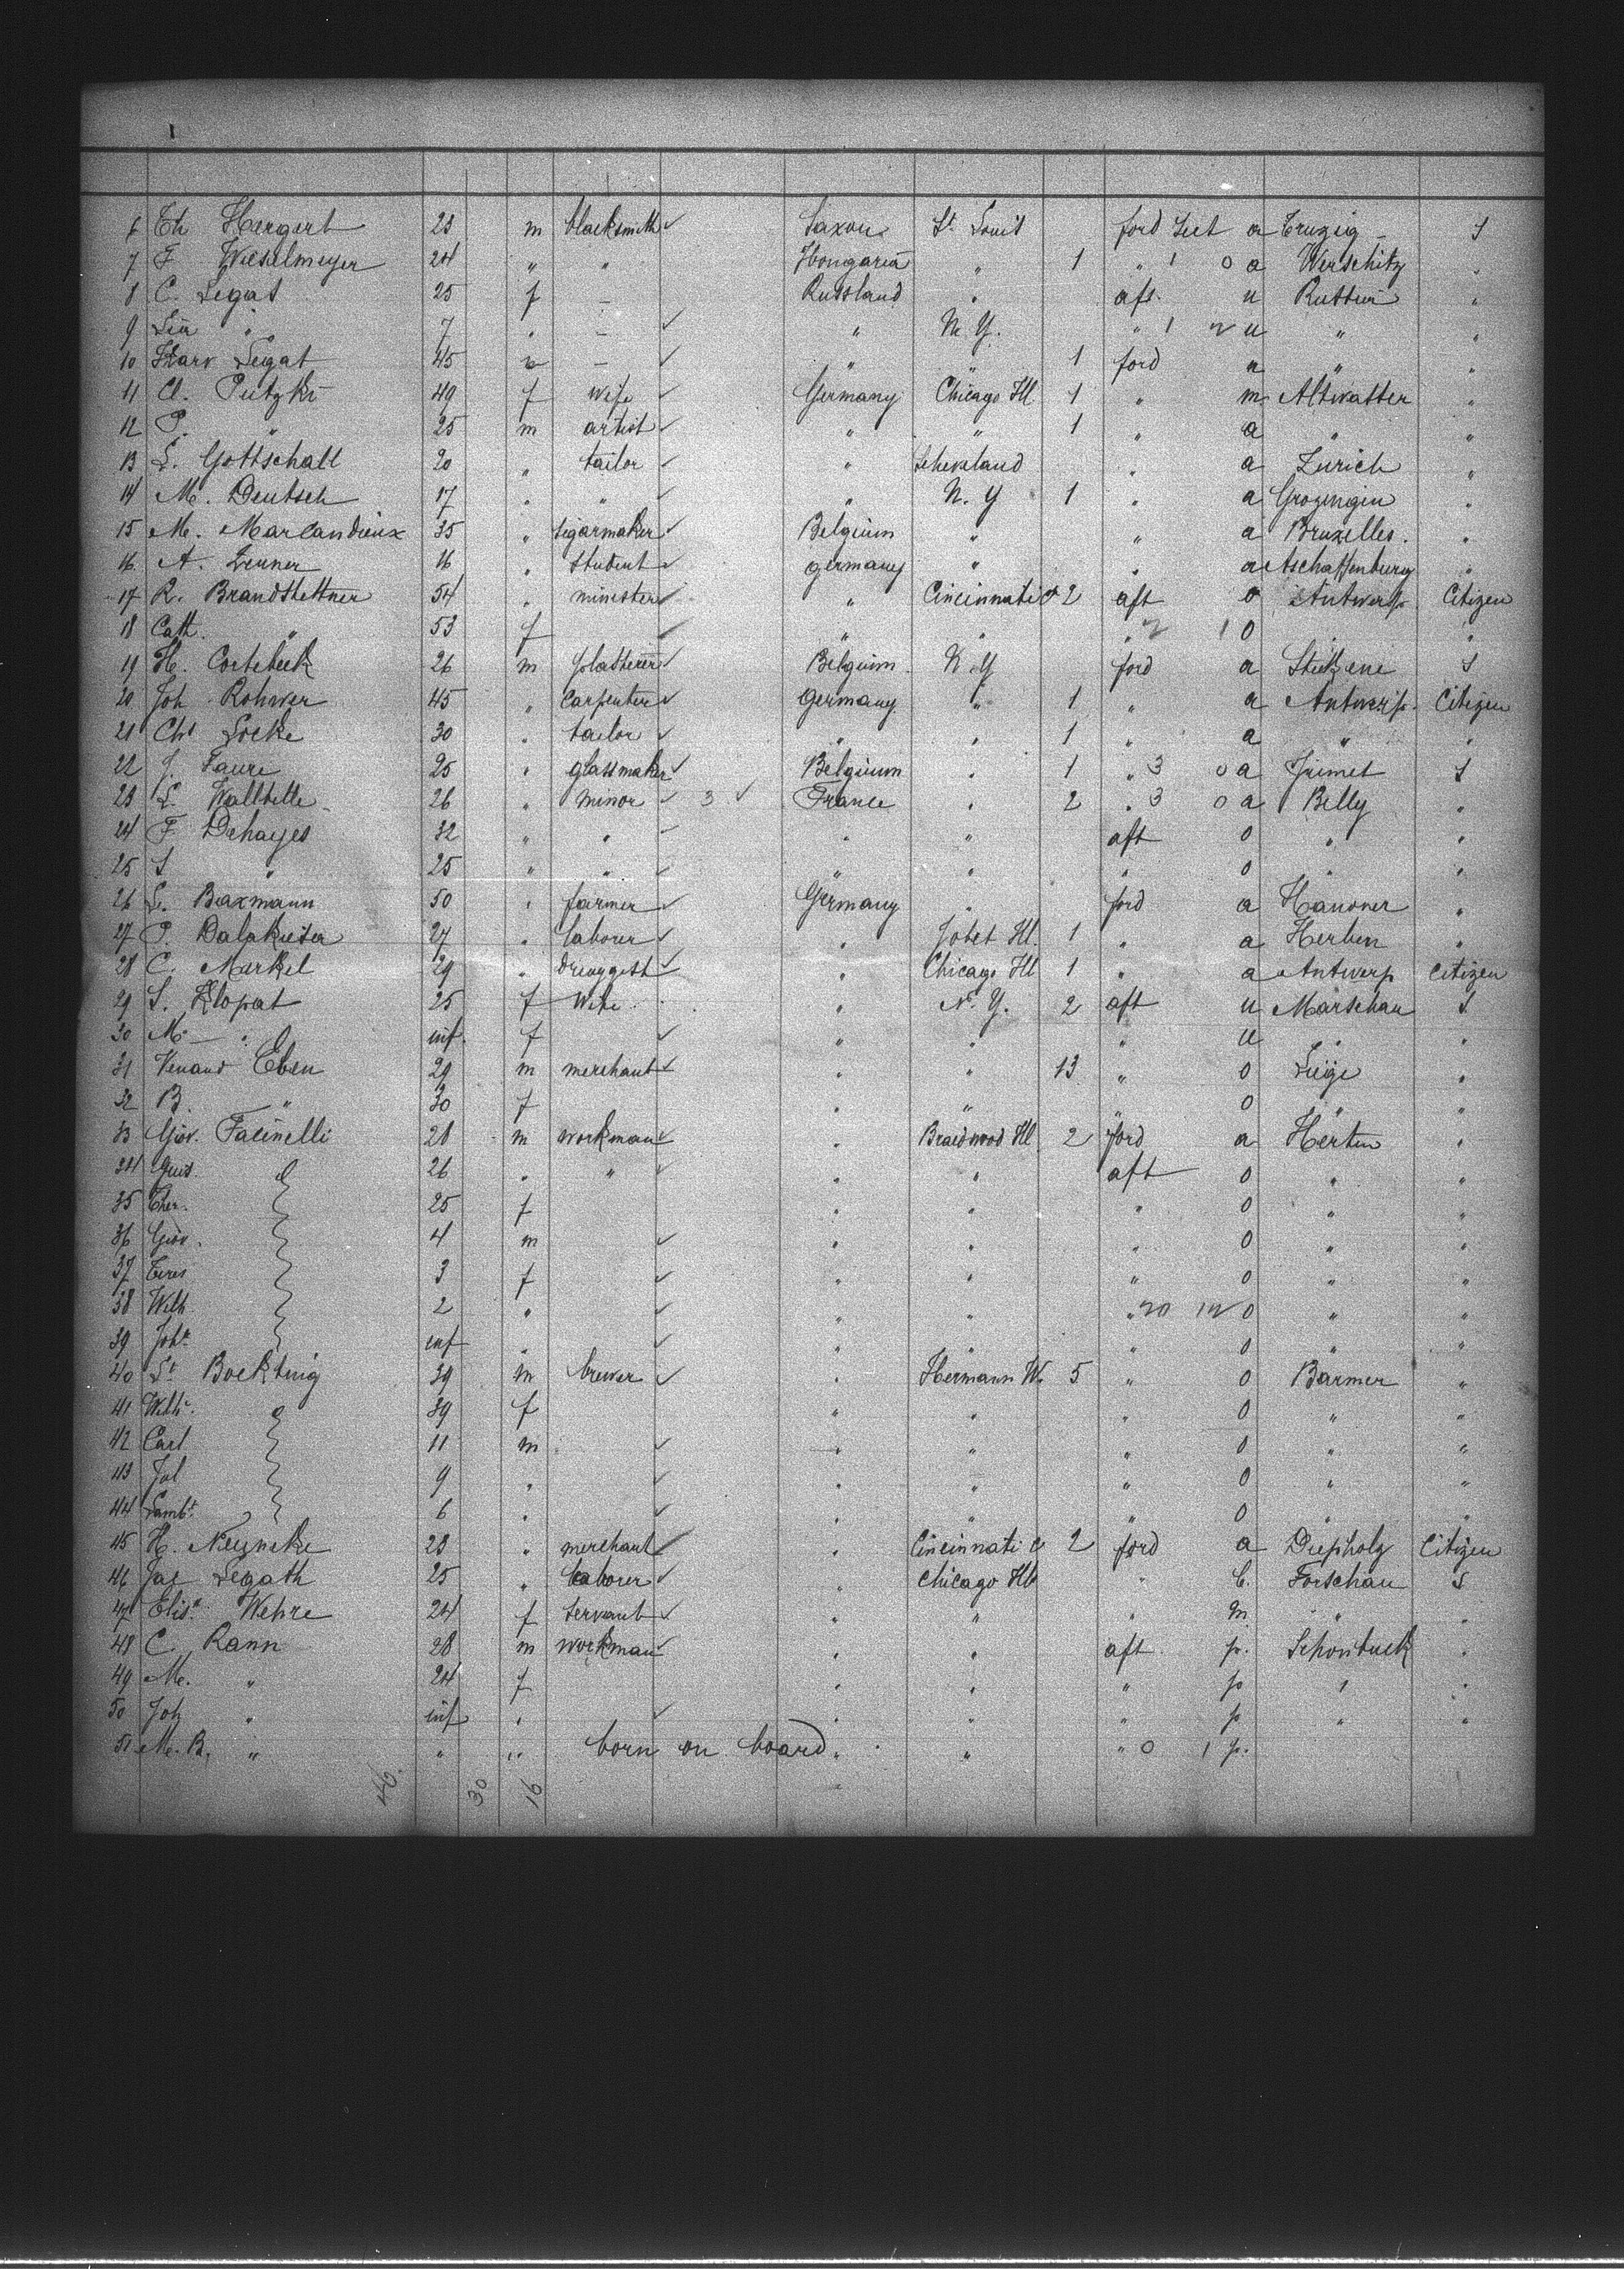 6 Th Hergert 23 m blacksmith ✓ Saxon St. Louis ford Sect a Truzig S
7 F Wieselmeyer 24 " " Hongaria " 1 " 1 0 a Werschitz "
8 C. Legat 25 f – Russland " aft. u "
9 " 7 " – ✓ " N. Y. " 1 u " "
10 Legat 45 – ✓ " " 1 ford " "
11 Cl. Putzki 49 f wife ✓ Germany Chicago Ill 1 " m Altwasser "
12 P. " 25 m artist ✓ " " 1 " a " "
13 L. Gottschall 20 " tailor ✓ " " a Zurich "
14 M. Deutsch 17 " " ✓ " N. Y 1 " a "
15 M. Marlandieux 35 " segarmaker ✓ Belgium " " a Bruxelles. "
16 A. Zenner 16 " student ✓ germany " " a Aschaffenburg "
17 R. Brandstettner 54 " minester ✓ " Cincinnati O 2 aft 0 Antwerp Citizen
18 Cath. " 53 f ✓ " " " 2 1 0 " "
19 H. Cortebeek 26 m plasterer ✓ Belgium N. Y ford a Stekene S
20 Joh Rohwer 45 " Carpenter ✓ germany " 1 " a Antwerp. Citizen
21 Chs Locke 30 " tailor ✓ " " 1 " a " "
22 J. Faure 25 " glassmaker ✓ Belgium " 1 " 3 0 a Jumet S
23 L. 26 " minor ✓ 3 ✓ France " 2 " 3 0 a Belly "
24 F Dehayes 32 " " " " aft 0 " "
25 S " 25 " " ✓ " " " 0 " "
26 L. Baxmann 50 " farmer ✓ Germany " ford a Hanover "
27 P. 27 " laborer ✓ " Ill. 1 " a Herben "
28 C. Merkel 29 " druggist ✓ " Chicago Ill 1 " a Antwerp Citizen
29 S. Klopat 25 f Wife " N. Y. 2 aft u Marschau S
30 M " inf. f " " " u " "
31 Venand Eben 29 m merchant ✓ " " 13 " 0 Liége "
32 B. " 30 f " " " 0 " "
33 Giov. Facinelli 28 m workman ✓ " Braidwood Ill 2 ford a Herten "
34 Gius. 26 " " ✓ " " aft 0 " "
35 Ther. 25 f " " " 0 " "
36 Giov. 4 m ✓ " " " 0 " "
37 Teres 3 f ✓ " " " 0 " "
38 Wilh 2 " ✓ " " " 20 12 0 " "
39 Joha inf " ✓ " " " 0 " "
40 St Boekting 39 m brewer ✓ " Hermann W. 5 " 0 Barmer "
41 Wilh. 39 f " " " 0 " "
42 Carl 11 m ✓ " " " 0 " "
43 Jul 9 " ✓ " " " 0 " "
44 Lambt. 6 " ✓ " " " 0 " "
45 H. 23 " merchant ✓ " Cincinnati O 2 ford a Diepholz Citizen
46 Jac Legath 25 " laborer ✓ " Chicago Ill " b. Forschau S
47 Elisa Wehre 24 f servant ✓ " " " m " "
48 C. Rann 28 m workman ✓ " " aft p. Schonbuck "
49 M. " 24 f " " " p " "
50 Joh " inf " ✓ " " " p " "
51 M. B. " " " born on board " " " 0 1 p.
46. 30 16